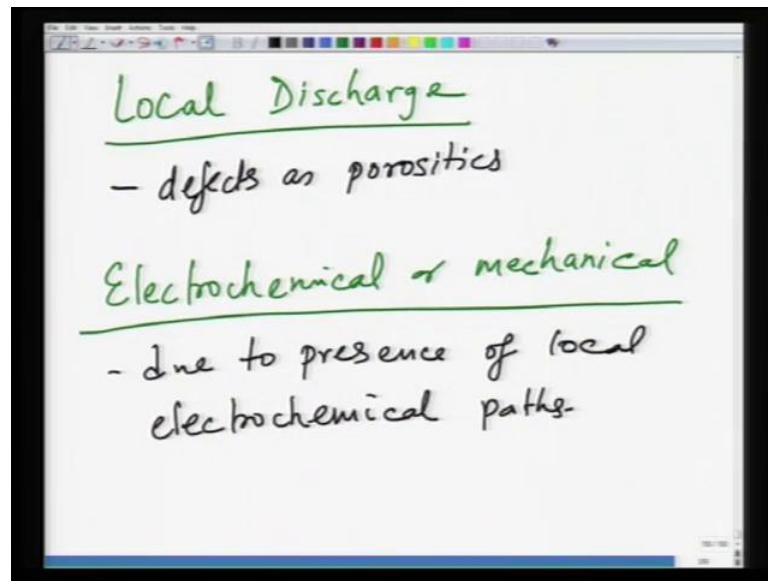 Local Discharge
- defects as porosities
Electrochemical or mechanical
- due to presence of local
electrochemical paths.